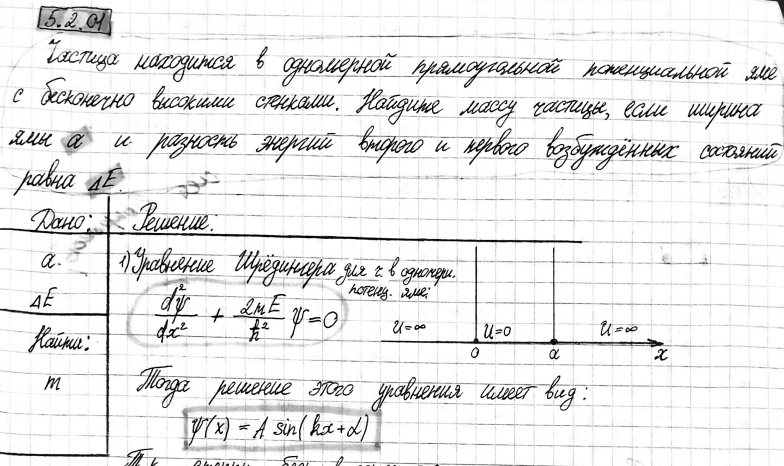 5.2.01
Частица находится в одномерной прямоугольной потенциальной яме
с бесконечно высокими стенками. Найдите массу частицы, если ширина
ямы a и разность энергий второго и первого возбуждённых состояний
равна ΔE.
Дано:
a.
ΔE
Найти:
m
Решение:
1) Уравнение Шрёдингера для ч. в одномерн.
потенц. яме:
d²ψ/dx² + 2mE/ħ² ψ = 0
U=∞ U=0 U=∞
0 a x
Тогда решение этого уравнения имеет вид:
ψ(x) = A sin(kx+α)